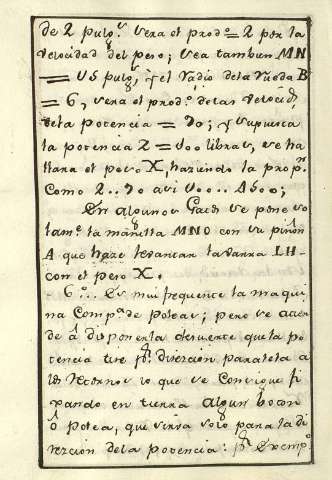 de 2 pulg.ˢ sera el prod.º = 2 por la
velocidad del peso; sea tambien MN
= 15 pulg.ˢ, y el radio de la rueda B
= 6, sera el prod.º de las velocid.ˢ
de la potencia = 90; y supuesta
la potencia 2 = 100 libras, se ha
llara el peso X, haziendo la prop.ⁿ
Como 2.. 90 asi 100.. 4500;
En algunos Gatos se pone so
lam.ᵗᵉ la manilla MNO con su piñon
A que haze levantar la barra LH
con el peso X.
6.º... Es mui frequente la maqui
na Comp.ᵗᵃ de poleas; pero se
de disponerla de suerte que la po
tencia tire p.ʳ direccion paralela a
los retornos lo que se Consigue fi
xando en tierra algun
ô polea, que sirva solo para la di
reccion de la potencia: p.ʳ Exemp.º